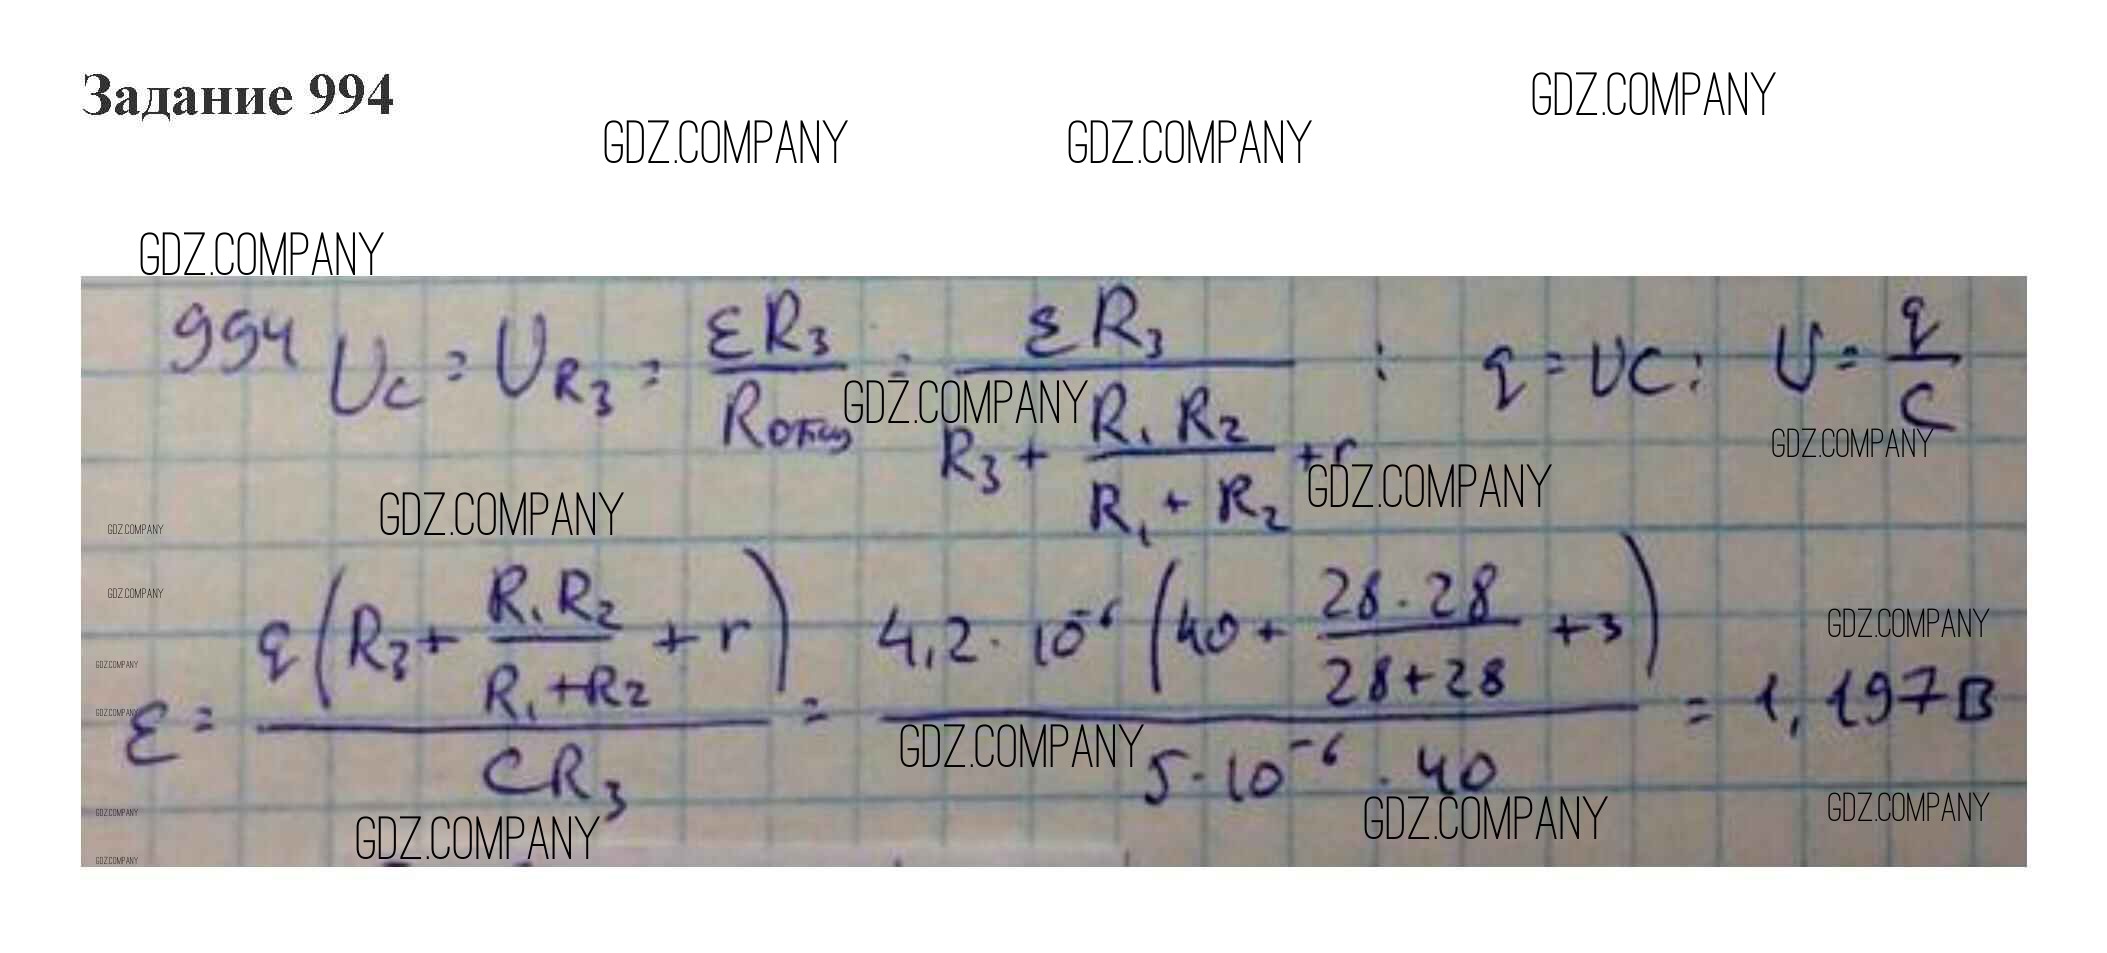 Задание 994
GDZ.COMPANY
GDZ.COMPANY GDZ.COMPANY
GDZ.COMPANY
994 Uc = U_R3 = εR3 / Rобщ = εR3 / (R3 + R1 R2 / (R1 + R2) + r) ; q = UC; U = q / C
GDZ.COMPANY
GDZ.COMPANY
GDZ.COMPANY GDZ.COMPANY
GDZ.COMPANY
GDZ.COMPANY
ε = q(R3 + R1 R2 / (R1 + R2) + r) / CR3 = 4,2 · 10⁻⁶ (40 + 28 · 28 / (28 + 28) + 3) / (5 · 10⁻⁶ · 40) = 1,197 В
GDZ.COMPANY
GDZ.COMPANY
GDZ.COMPANY
GDZ.COMPANY
GDZ.COMPANY GDZ.COMPANY GDZ.COMPANY
GDZ.COMPANY
GDZ.COMPANY